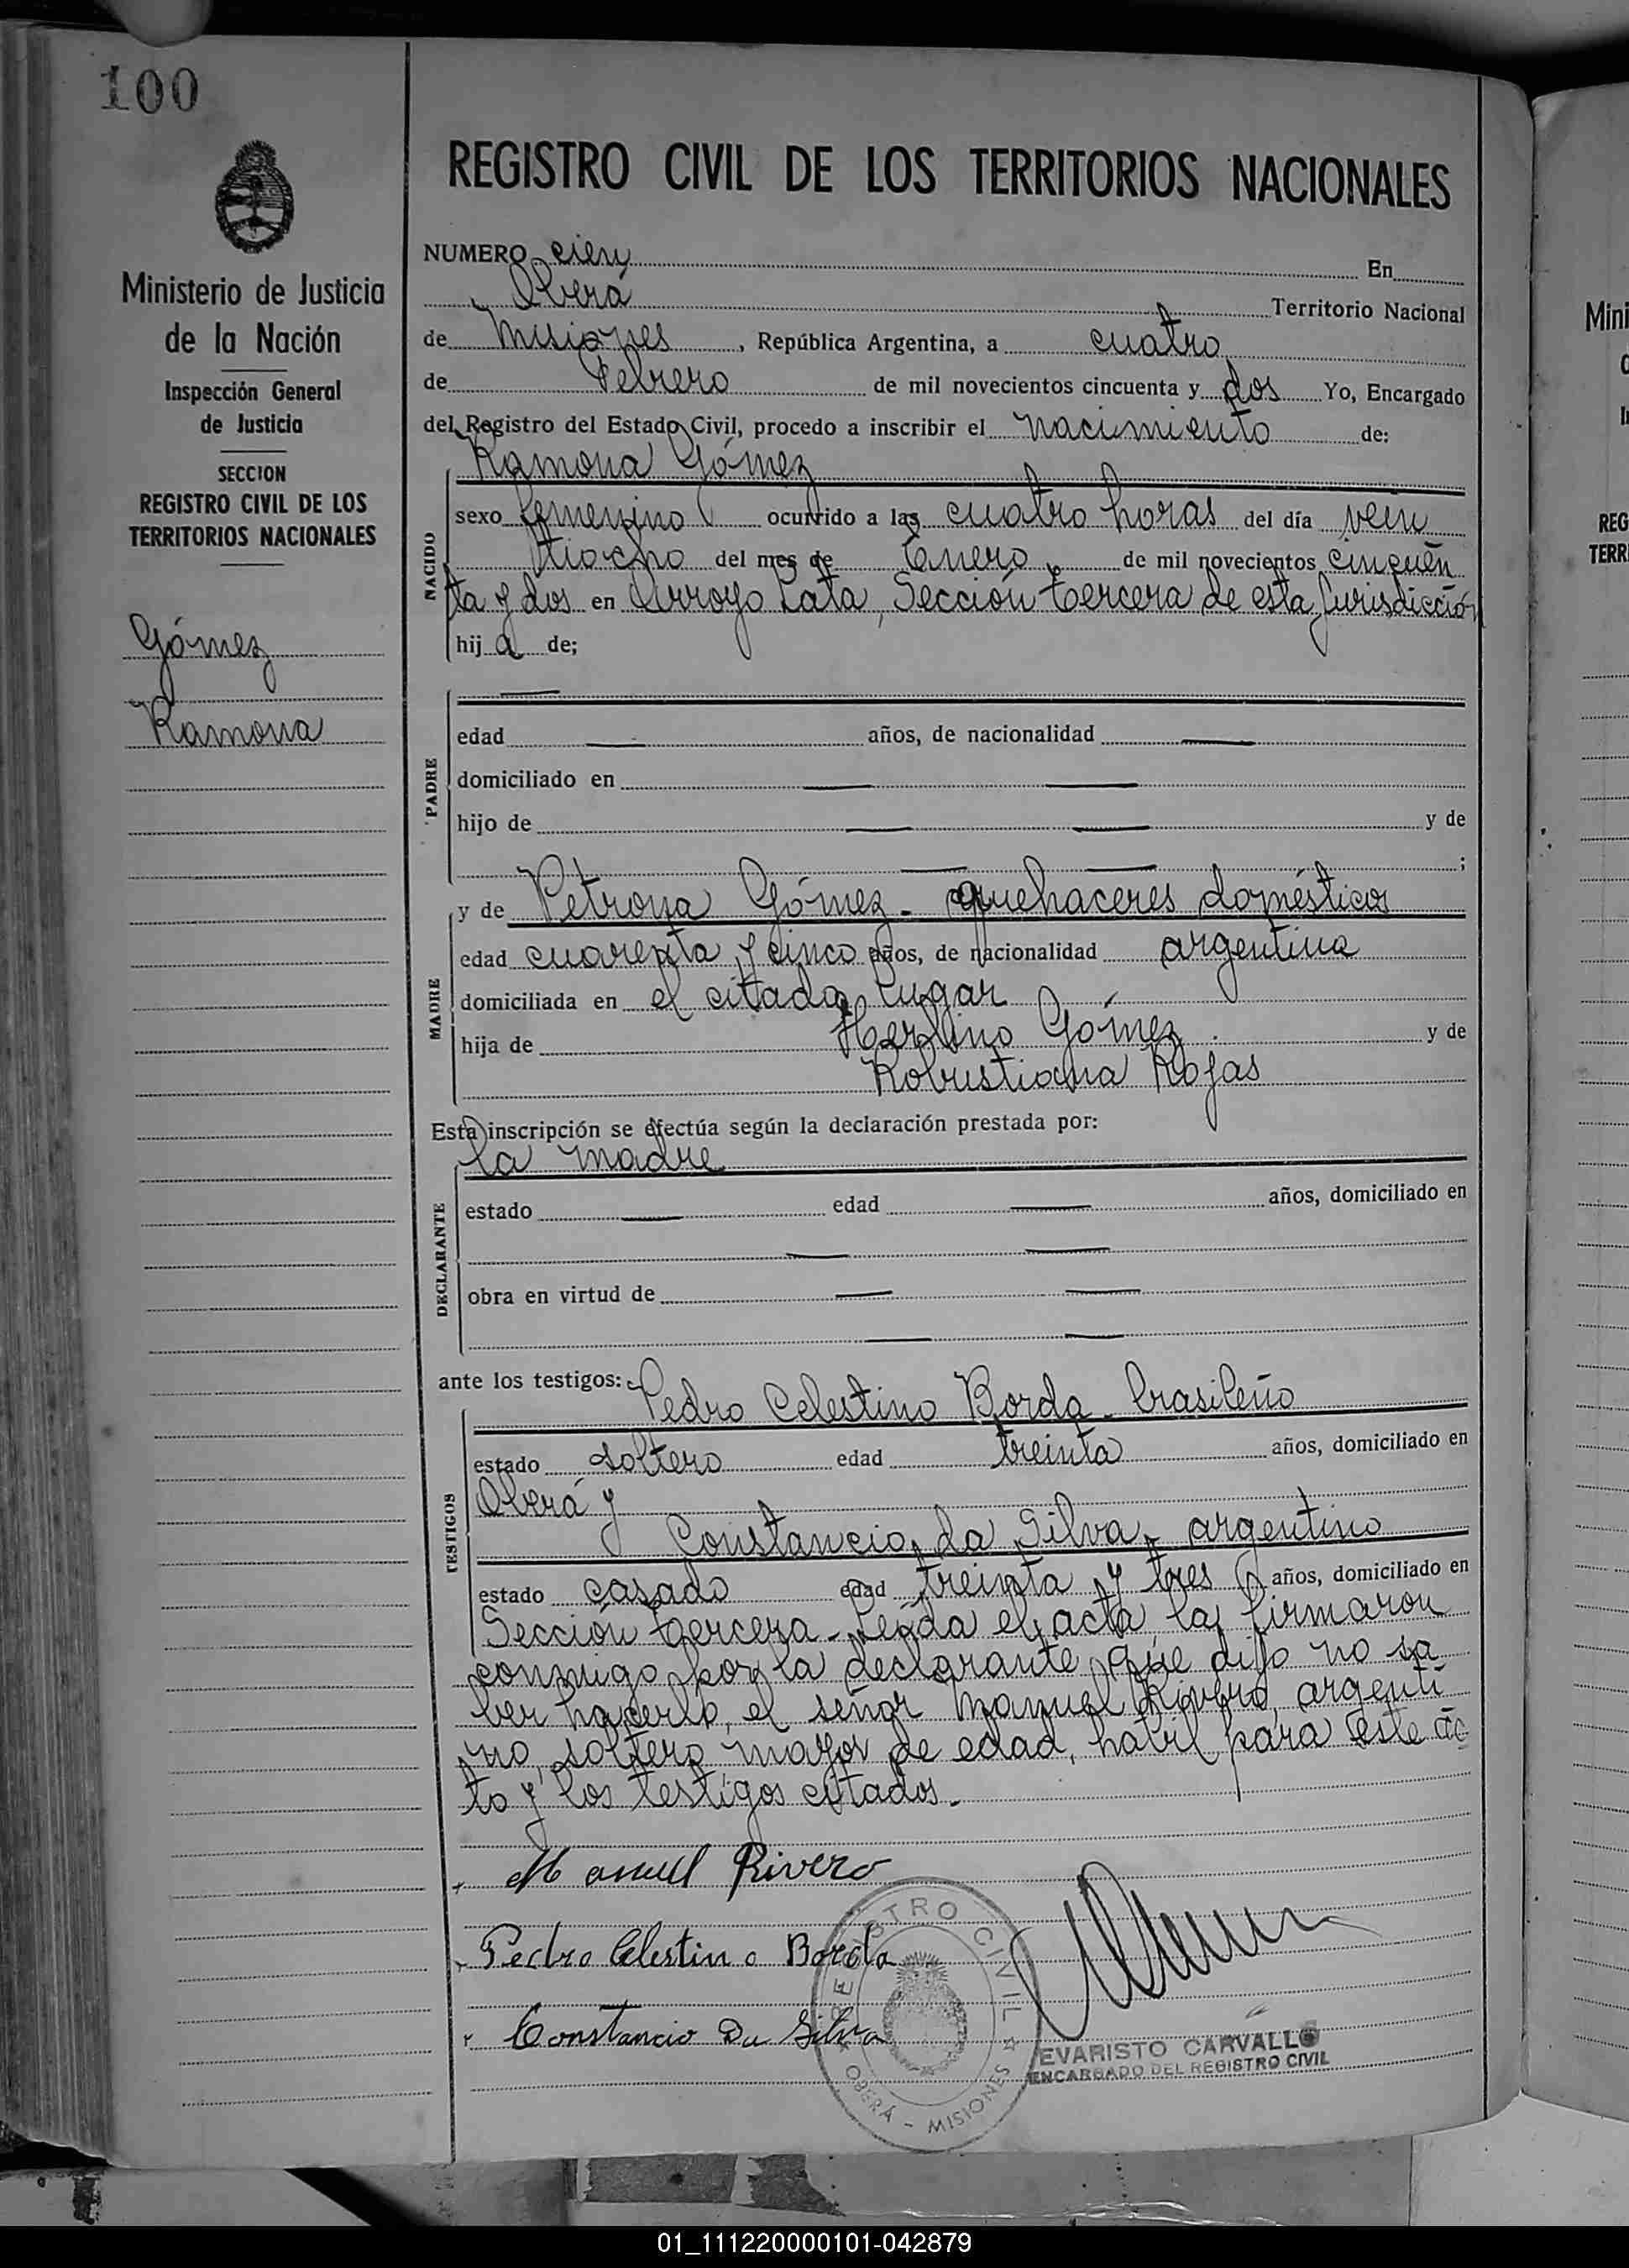 100
Ministerio de Justicia
de la Nación
Inspección General
de Justicia
SECCION
REGISTRO CIVIL DE LOS
TERRITORIOS NACIONALES
Gómez
Ramona
REGISTRO CIVIL DE LOS TERRITORIOS NACIONALES
NUMERO cien En
Oberá Territorio Nacional
de Misiones, República Argentina, a cuatro
de Febrero de mil novecientos cincuenta y dos Yo, Encargado
del Registro del Estado Civil, procedo a inscribir el nacimiento de:
Ramona Gómez
NACIDO
sexo femenino ocurrido a las cuatro horas del día vein
tiocho del mes de Enero de mil novecientos cincuen
ta y dos en Arroyo Lata, Sección tercera de esta jurisdicción
hija de;
PADRE
edad años, de nacionalidad
domiciliado en
hijo de y de
;
MADRE
y de Petrona Gómez - quehaceres domésticos
edad cuarenta y cinco años, de nacionalidad argentina
domiciliada en el citado lugar
hija de Herlino Gómez y de
Robustiana Rojas
Esta inscripción se efectúa según la declaración prestada por:
la madre
DECLARANTE
estado edad años, domiciliado en
obra en virtud de
ante los testigos: Pedro Celestino Borda - brasileño
TESTIGOS
estado soltero edad treinta años, domiciliado en
Oberá y
Constancio da Silva - argentino
estado casado edad treinta y tres años, domiciliado en
Sección tercera - Leída el acta, la firmaron
conmigo por la declarante que dijo no sa
ber hacerlo, el señor Manuel Rivero, argenti
no, soltero mayor de edad, habil para este ac
to y los testigos citados.
Manuel Rivero
Pedro Celestino Borda
Constancio Da Silva
REGISTRO CIVIL
OBERÁ - MISIONES
EVARISTO CARVALLO
ENCARGADO DEL REGISTRO CIVIL
Mini
REG
TERR
01_111220000101-042879